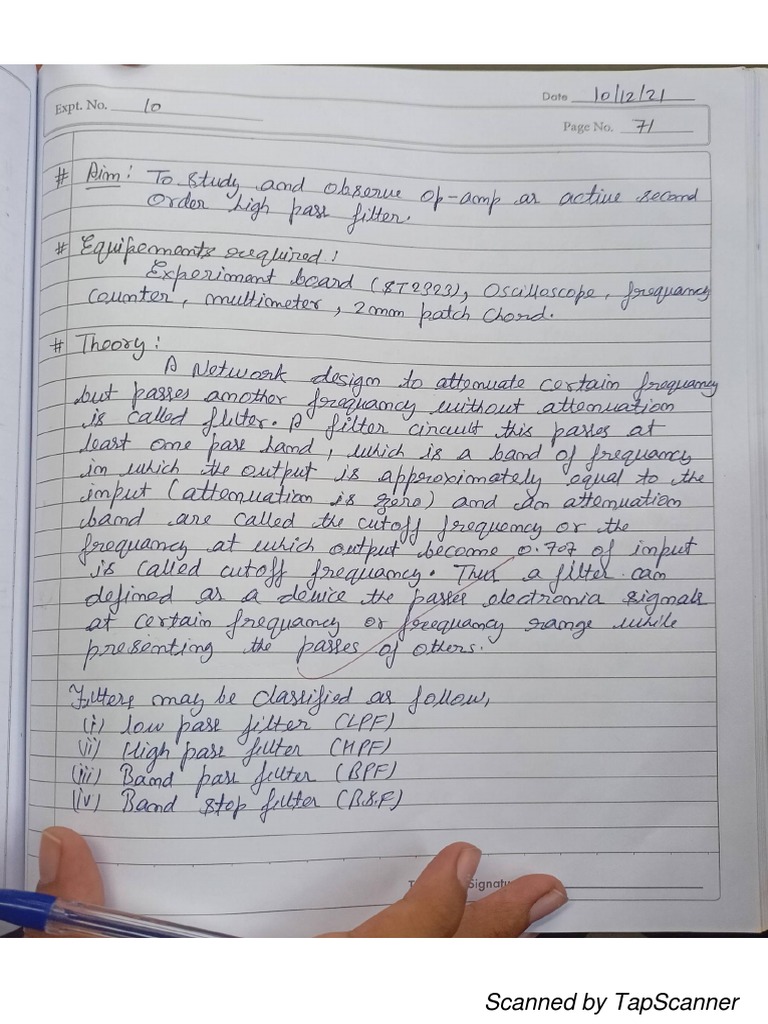 Expt. No. 10
Date 10/12/21
Page No. 71
# Aim: To study and observe op-amp as active second
order high pass filter.
# Equipements required:
Experiment board (ST2323), Oscilloscope, frequancy
counter, multimeter, 2mm patch chord.
# Theory:
A Network design to attenuate certain frequancy
but passes another frequancy without attenuation
is called filter. A filter circuit this passes at
least one pass band, which is a band of frequancy
in which the output is approximately equal to the
input (attenuation is zero) and an attenuation
band are called the cutoff frequency or the
frequancy at which output become 0.707 of input
is called cutoff frequancy. Thus a filter can
defined as a device the passes electronia signals
at certain frequancy or frequancy range while
presenting the passes of others.
Filters may be classified as follow,
(i) low pass filter (LPF)
(ii) High pass filter (HPF)
(iii) Band pass filter (BPF)
(iv) Band stop filter (B.S.F)
Signatu
Scanned by TapScanner